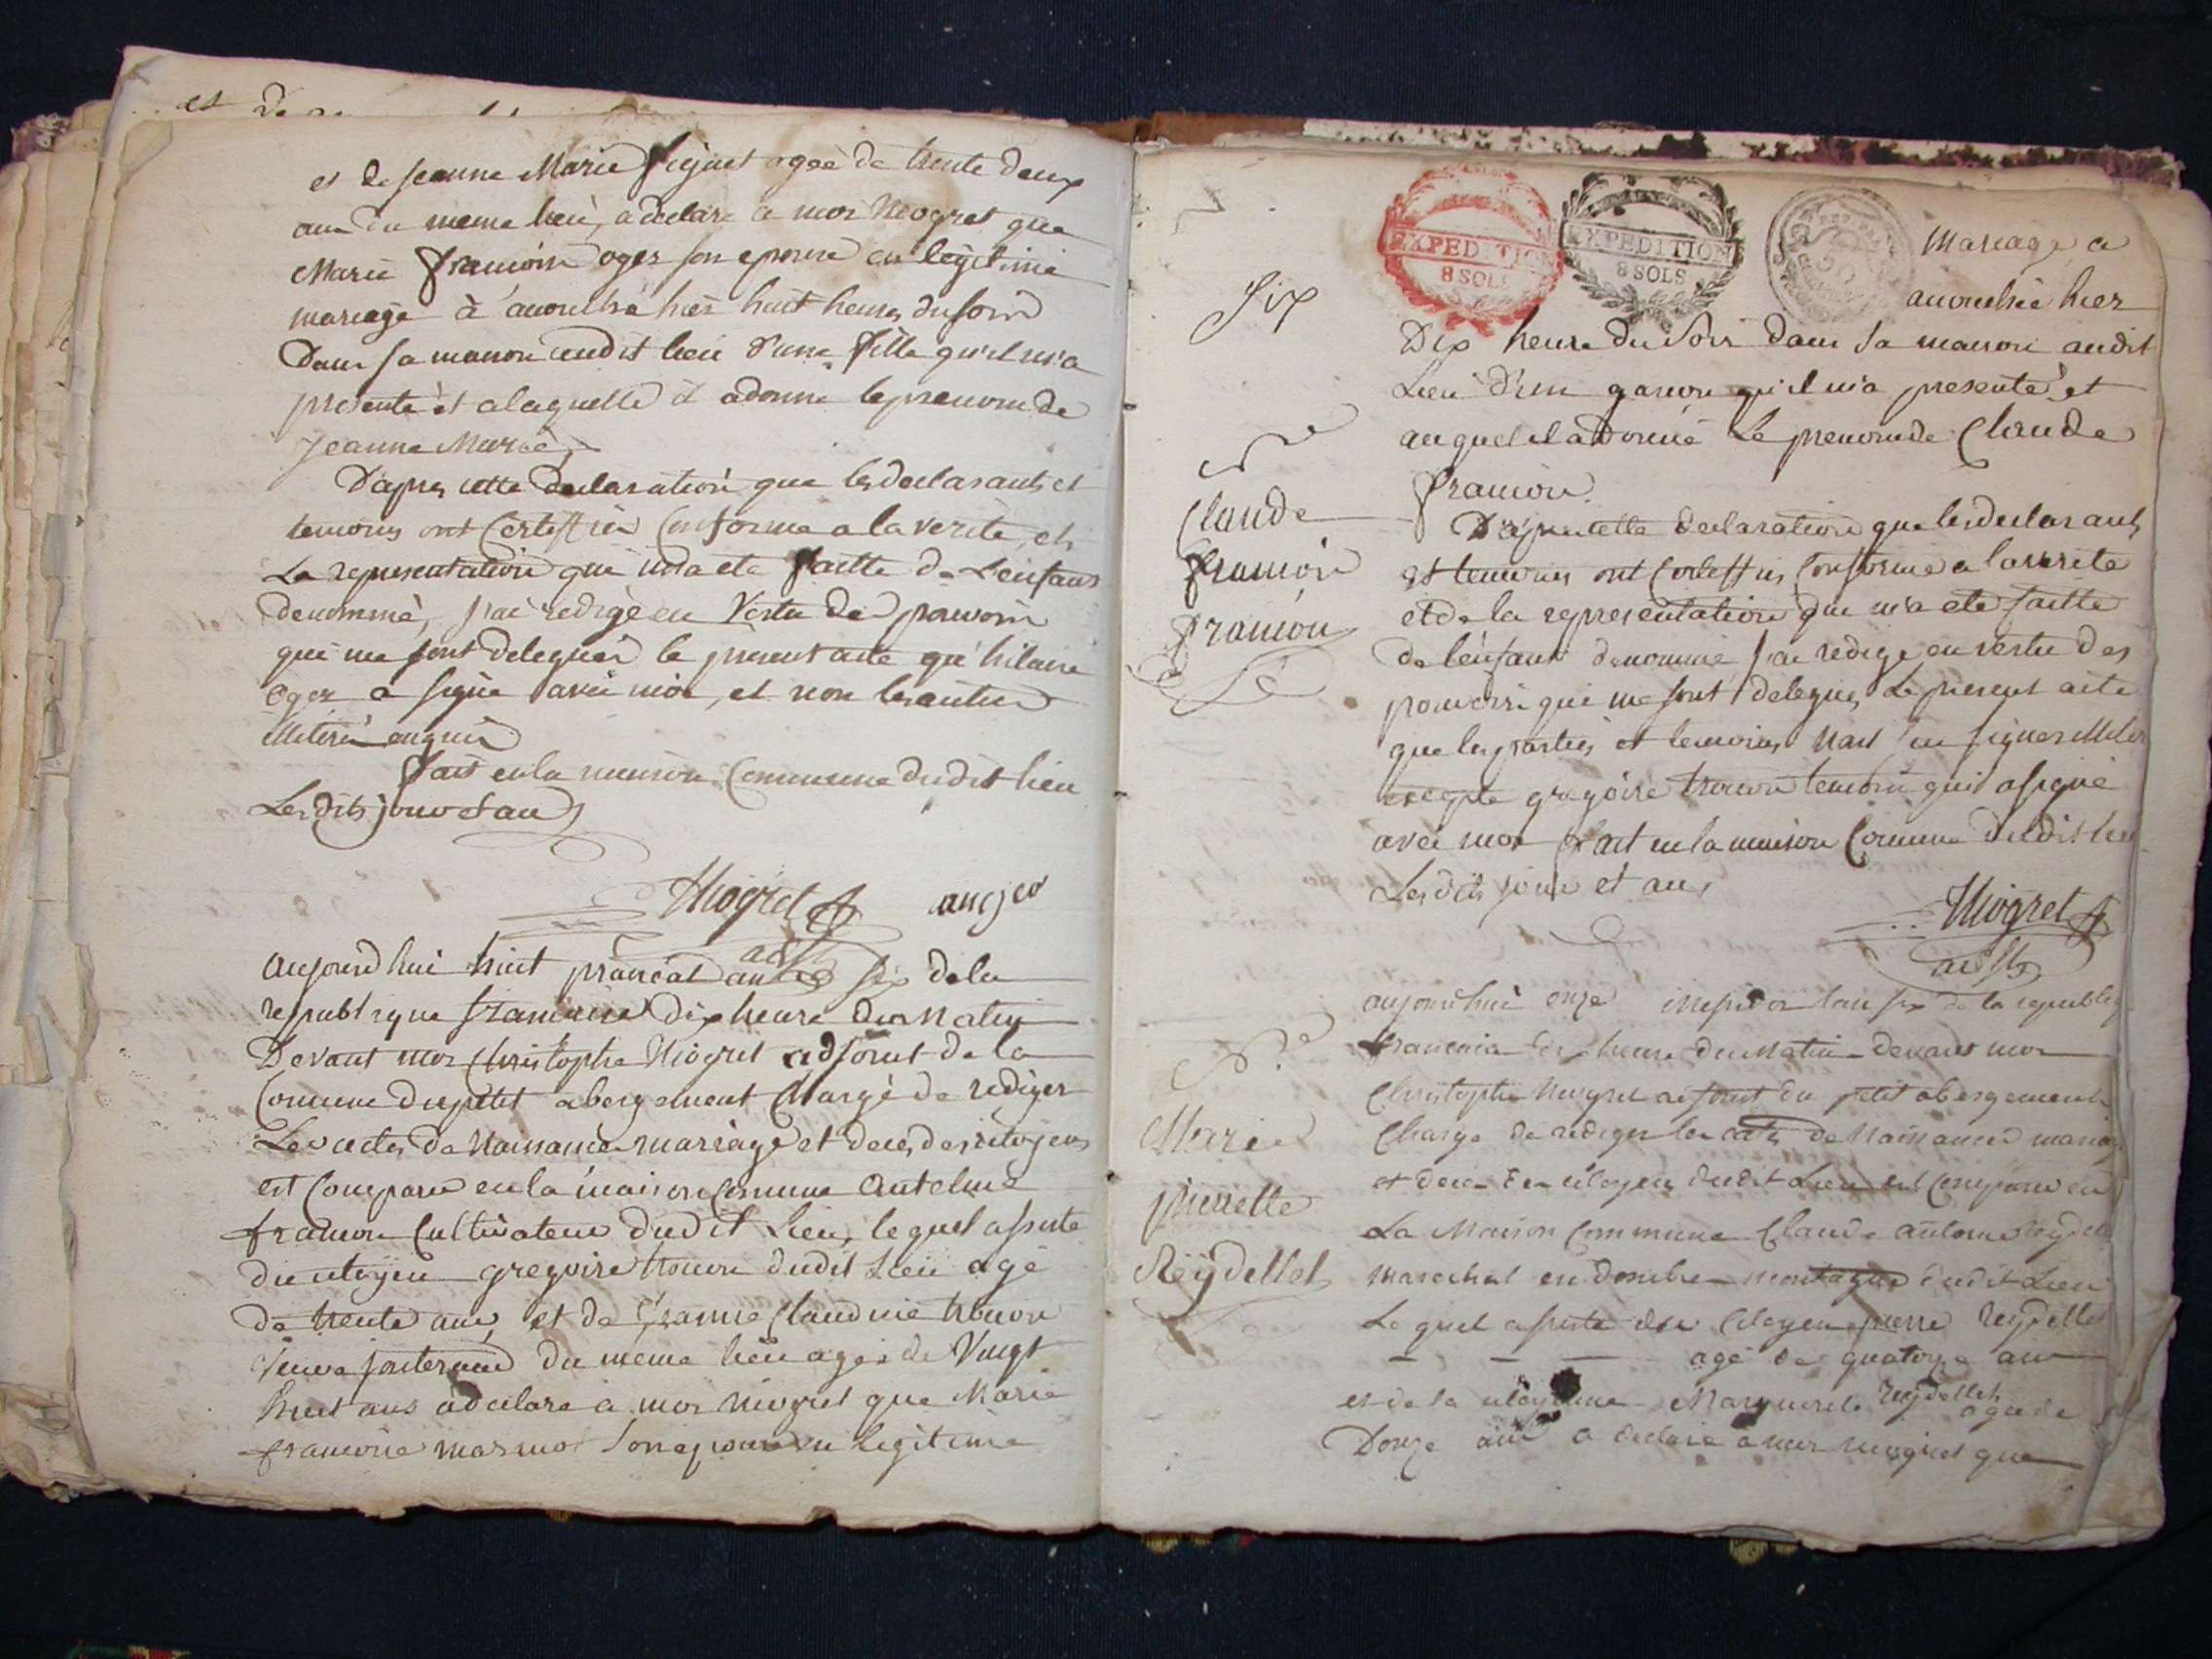 et de
et de jeanne Marie ageè de trente deux
ans du meme lieu, a declare a moi Niogret que
Marie francoise oger son epouse en legitime
mariage à acouchè hier huit heures du soir
Dans sa maison audit lieu d'une fille qu'il m'a
presentè et a laquelle il a donnè le prenom de
jeanne Marie
D'apres cette declaration que les declarants et
temoins ont Certiffièe Conforme a la verite, et
La representation qui m'a ete faitte de L'enfant
denommè, j'ai redigè en vertu des pouvoirs
qui me sont deleguès le present acte qu'hilaire
Oger a signè avec moi, et non les autres
illiterè enquis
fait en la maison Commune dudit lieu
Les dits jour et an
Niogret
adjt
aujourdhui huit prairial an six de la
republique francaise dix heure du Matin
Devant moi Christophe Niogret adjoint de la
Commune du petit abergement Chargè de rediger
Les actes de Naissance mariage et deces des citoyens
est Comparu en la maison Commune antelme
francon Cultivateur dudit Lieu, le quel assistè
du citoyen gregoire dudit Lieu agè
de trente ans, et de Claudine
du meme lieu ageè de Vingt
huit ans a declare a moi Niogret que Marie
francoise son epouse en legitime
Six
EXPEDITION
8 SOLS
EXPEDITION
8 SOLS
Mariage, a
acouchèe hier
Dix heure du Soir dans sa maison audit
Lieu d'un garcon qu'il m'a presentè et
auquel il a donnè Le prenom de Claude
francois
Nce
Claude
francois
francon
D'apres cette declaration que les declarants
et temoins ont Certiffiès Conforme a la verite
et de la representation qui m'a ete faitte
de l'enfant denommè j'ai redigè en vertu des
pouvoirs qui me sont delegues Le present acte
que les parties et temoins N'ont su signer
excepte gregoire temoin qui a signè
avec moi fait en la maison Commune dudit lieu
Les dits jour et an
Niogret
adjt
aujourdhui onze messidor l'an six de la republique
francaise dix heure du Matin devant moi
Christophe Niogret adjoint du petit abergement
Charge de rediger les actes de Naissance mariage
et deces des citoyens dudit Lieu est Comparu en
La Maison Commune Claude antoine Reydellet
Marechal en dudit Lieu
Le quel assiste du Citoyen pierre Reydellet
agè de quatorze ans
et de la citoyenne Marguerite Reydellet
agee de
Douze ans a declare a moi Niogret que
Nce
Marie
pierrette
Reÿdellet